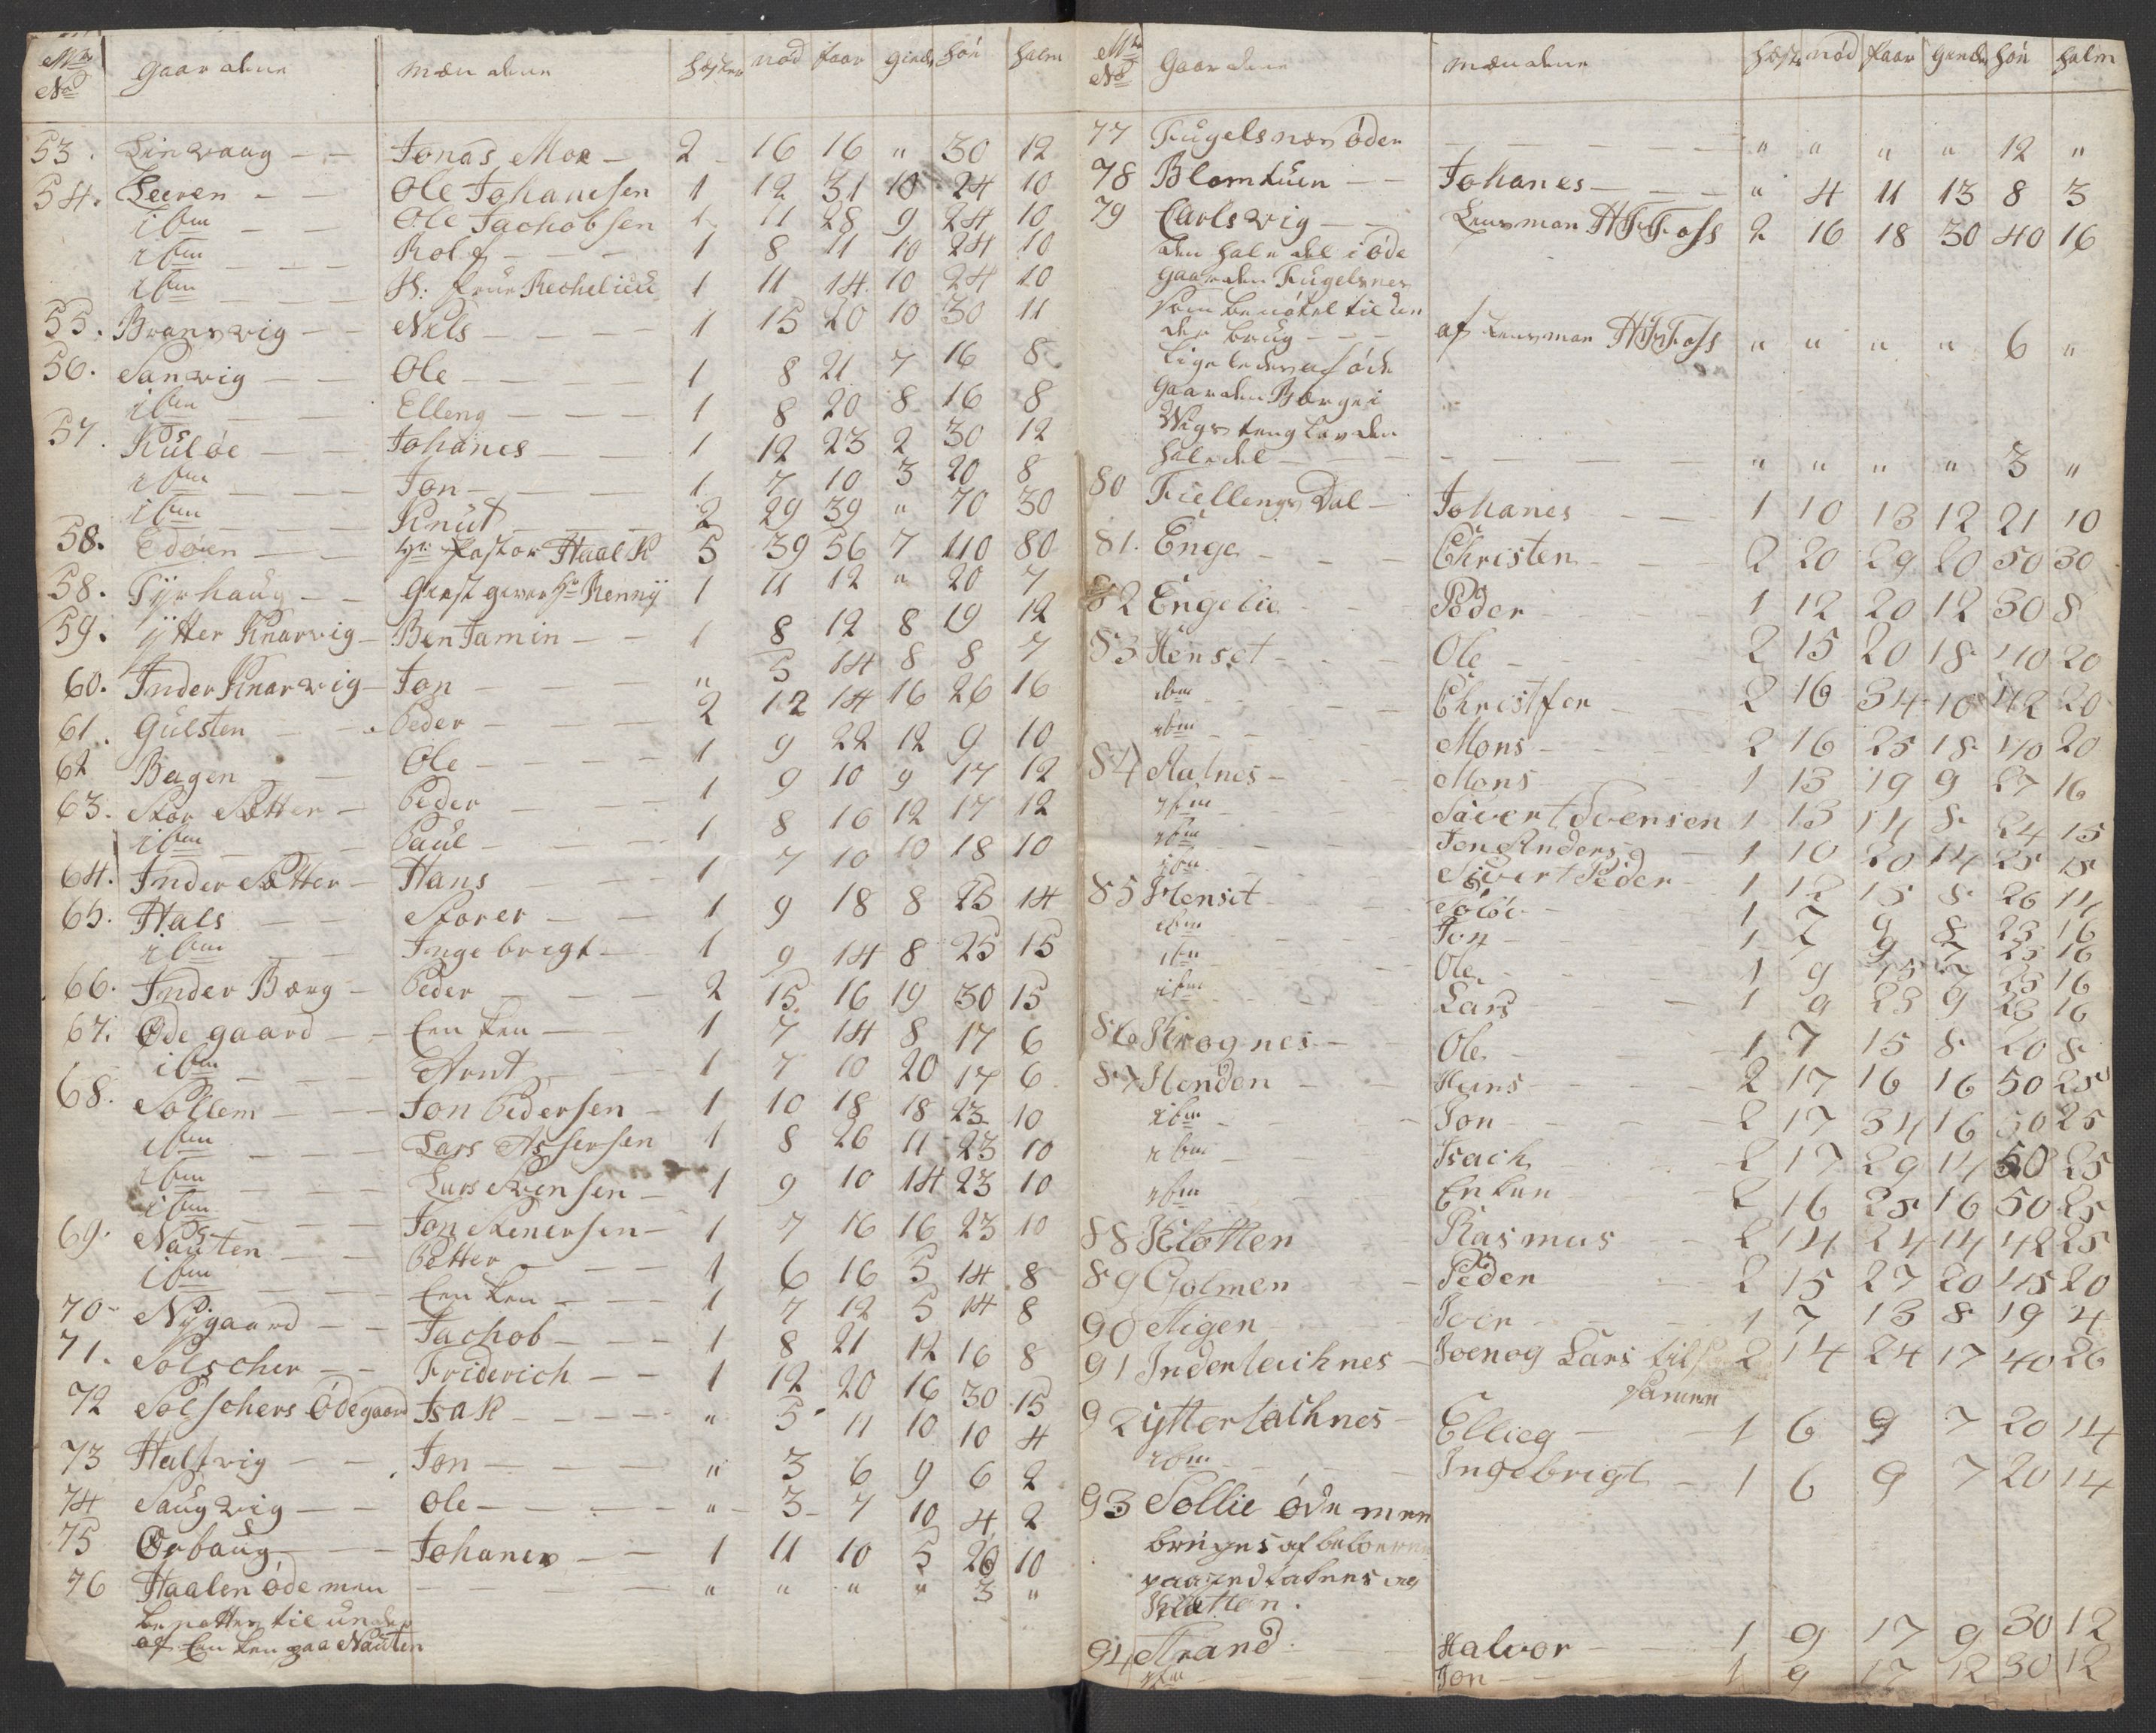 Mtr No Gaardene mændene hæster nød faar gieder höe halm
53. Linvaag Jonas Moe 2 16 16 " 30 12
54. Leeren Ole Johanesen 1 12 31 10 24 10
ibm Ole Jachobsen 1 11 28 9 24 10
ibm Rolf 1 8 11 10 24 10
ibm 1 11 14 10 24 10
55. Bransvig Nils 1 15 20 10 30 11
56. Sanvig Ole 1 8 21 7 16 8
ibm Elleng 1 8 20 8 16 8
57. Kulöe Johanes 1 12 23 2 30 12
ibm Jon 1 7 10 3 20 8
ibm Knut 2 29 39 " 70 30
58. Edöen Hr Pastor Haalk 5 39 56 7 110 80
58. Tyrhaug Giestgever Hr Renny 1 11 12 " 20 7
59. ytter Knarvig Benjamin 1 8 12 8 19 12
60. Inder Knarvig Jon " 5 14 8 8 7
61. Gulsten Peder 2 12 14 16 26 16
62 Bagen Ole 1 9 22 12 9 10
63. Stor Sætter Peder 1 9 10 9 17 12
ibm Paul 1 8 16 12 17 12
64. Inder Sætter Hans 1 7 10 10 18 10
65. Hals Storer 1 9 18 8 25 14
ibm Ingebrigt 1 9 14 8 25 15
66. Inder Bærg Peder 2 15 16 19 30 15
67. Ödegaard Enken 1 7 14 8 17 6
ibm Arnt 1 7 10 20 17 6
68. Sollem Jon Pedersen 1 10 18 18 23 10
ibm Lars Assersen 1 8 26 11 23 10
ibm Lars Svensen 1 9 10 14 23 10
ibm Jon Stenersen 1 7 16 16 23 10
69. Nausten Petter 1 6 16 5 14 8
ibm Enken 1 7 12 5 14 8
70 Nygaard Jachob 1 8 21 12 16 8
71. Solscher Friderich 1 12 20 16 30 15
72 Solschers Ödegaard Isak " 5 11 10 10 4
73 Halsvig Jon " 3 6 9 6 2
74 Saugvig Ole " 3 7 10 4 2
75 Örbaug Johanes 1 11 10 5 20 10
76 Haalen öde men " " " " 3 "
benöttes til under
af Enken paa Nausten
Mtr No Gaardene mændene hæster nød faar gieder höe halm
77 Fugelsnes öden " " " " 12 "
78 Blomtuen Johanes " 4 11 13 8 3
79 Carlsvig Lensman Foss 2 16 18 30 40 16
den halve del i öde
gaarden Fugelsnes
som benötes til un
der brug af Lensman Foss " " " " 6 "
ligeledes af öde
gaarden Bærge i
Wigs teng lav den
halvedel " " " " 3 "
80 Fiellengsdal Johanes 1 10 13 12 21 10
81. Enge Christen 2 20 29 20 50 30
82 Engelie Peder 1 12 20 12 30 8
83 Henset Ole 2 15 20 18 40 20
ibm Christfer 2 16 34 10 42 20
ibm Mons 2 16 25 18 40 20
84 Aalnes Mons 1 13 19 9 27 16
ibm Sivert Svensen 1 13 14 8 24 15
ibm Jon Anders 1 10 20 14 25 15
ibm Sivert Peder 1 12 15 8 26 14
85 Henset 1 7 9 8 23 16
ibm Jon 1 9 7 23 16
ibm Ole 1 9 15 7 23 16
ibm Lars 1 9 23 9 23 16
86 Krognes Ole 1 7 15 8 20 8
87 Henden Hans 2 17 16 16 50 25
ibm Jon 2 17 34 16 50 25
ibm Isach 2 17 29 14 50 25
ibm Enken 2 16 25 16 50 25
88 Klotten Rasmus 2 14 24 14 42 25
89 Golmen Peder 2 15 27 20 45 20
90 Aigen Iver 1 7 13 8 19 4
91 Inderlachnes Iver og Lars til 2 14 24 17 40 26
samen
92 ytterlachnes Ellieg 1 6 9 7 20 14
ibm Ingebrigt 1 6 9 7 20 14
93 Sollie öde men
bruges af beboerne
paa og
Klotten.
94 Strand Halvor 1 9 17 9 30 12
ibm Jon 1 9 17 12 30 12